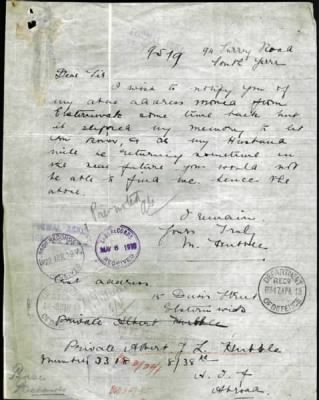 9519 94 Surrey Road
South Yarra
Dear Sir
I wish to notify you of
my above address moved from
Elsternwick some time back but
it slipped my memory to let
you know, as my Husband
will be returning sometime in
the near future you would not
be able to find me. hence the
above.
I remain
Yours Truly
M. Hubble
MAY 6 1918
RECEIVED
DEPARTMENT
RECD
OF DEFENCE
address
15 Street
Elsternwick
Private Albert Hubble
Private Albert J L Hubble
Number 3318 8/38th
A. I. F
Abroad.